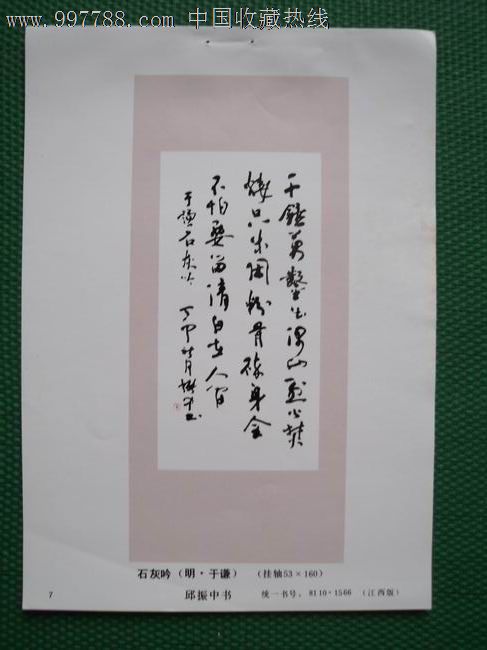 www.997788.com 中国收藏热线
千錘萬鑿出深山烈火焚
燒只等閒粉骨碎身全
不怕要留清白在人間
于謙石灰吟 丁卯 月 振中书
石灰吟（明·于谦） （挂轴53×160）
7 邱振中书 统一书号：8110·1566 （江西版）